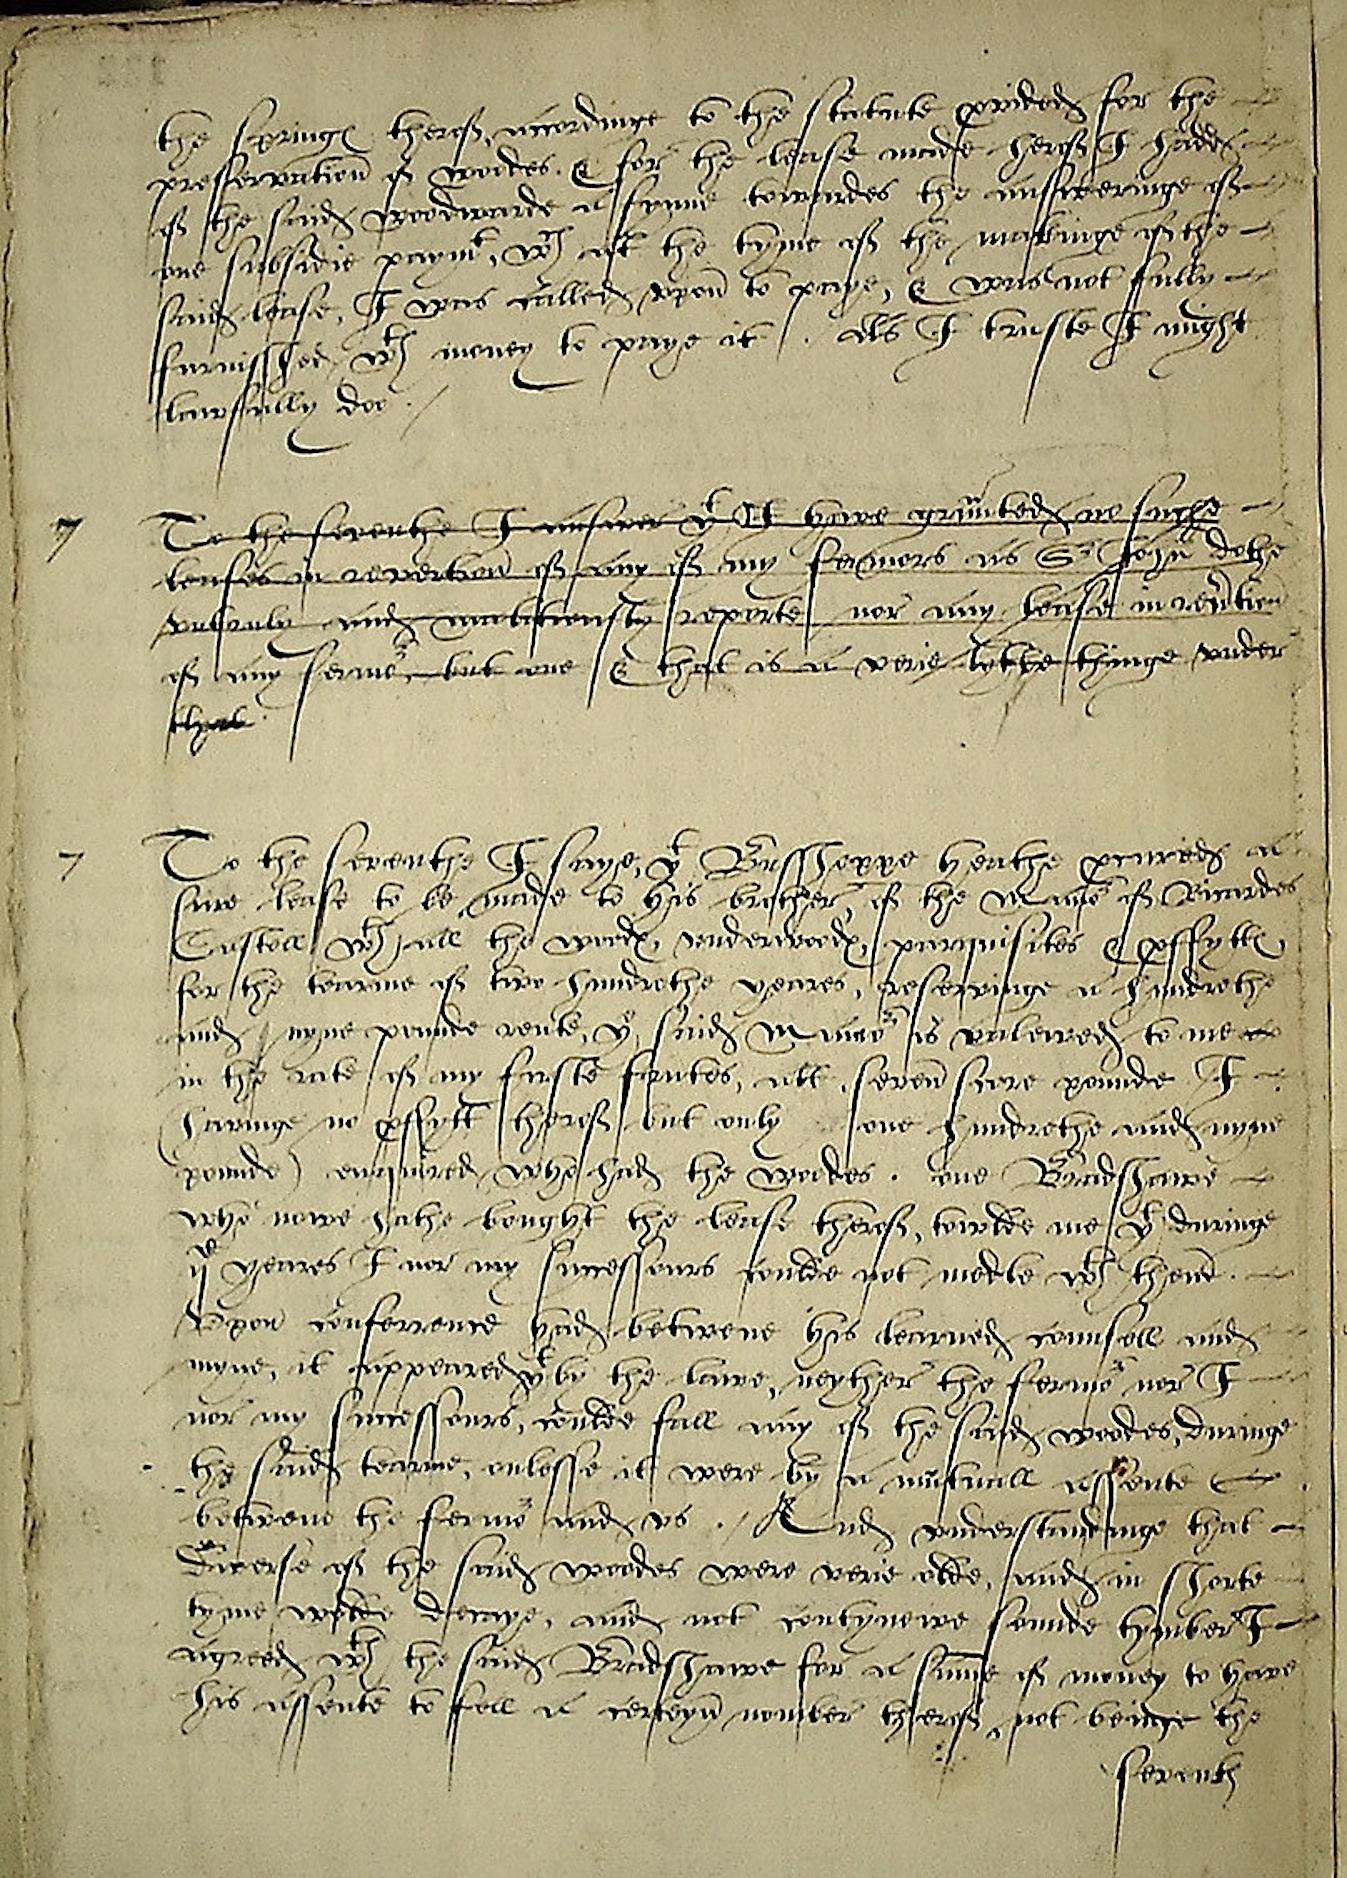 the springes therof, accordinge to the statute provided for the
preservation of woodes. & for the lease made herof I hadd
of the said woodwarde a fynne towardes the answeringe of
one subsidie paymt, wch at the tyme of the makinge of the
said lease, I was called vpon to paye, & was not fully
furnisshed wth money to paye it. As I truste I might
lawfully doe.
7 To the seventhe I answer yt I have graunted no suche
leases in revertion of any of my fermors as Sr John dothe
vntruly and malitiously reporte, nor any lease in revertion
of any ferme, but one & that is a verie lytle thinge vnder
that
7 To the seventhe I saye, yt Busshoppe Heathe procured a
sure lease to be made to his brother, of the Manor of Ricardes
Castell wth all the woodes, vnderwoodes, parquisites & proffyttes,
for the tearme of two hundrethe yeares, reservinge a hundrethe
and nyne pounde rente, ye said Manor is valewed to me
in the rate of my firste frutes, att seven score pounde I
(havinge no proffytt therof but only one hundrethe and nyne
pounde) enquired who had the woodes. one Bradshawe
who nowe hathe bought the lease therof, towlde me yt duringe
ye yeares I nor my successours coulde not medle wth them.
Vpon conferrence had betwene his learned counsell and
myne, it appeared yt by the lawe, neyther the fermor nor I
nor my successours, coulde fall any of the said woodes, duringe
the said tearme, onlesse it were by a mutuall assente
betwene the fermor and vs. And vnderstandinge that
diverse of the said woodes were verie olde, and in shorte
tyme wolde decaye, and not contynewe sounde tymber I
agreed wth the said Bradshawe for a summe of money to have
his assente to fell a certeyn nomber therof, not beinge the
seventh